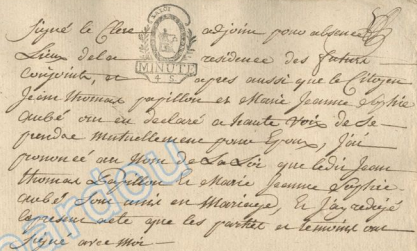 Signé le Clerc adjoint pour absence
Lieux de la residence des futurs
LA LOI
MINUTE
conjoints, et après aussi que le Citoyen
Jean thomas papillon et Marie Jeanne Sophie
aubé ont eu déclaré a haute voix de Se
prendre mutuellement pour Epoux, j'ai
prononcé au Nom de La Loi que ledit Jean
thomas Papillon et Marie Jeanne Sophie
aubé Sont unis en Mariage, Et j'ay redigé
Le present acte que les parties et temoins ont
Signé avec Moi